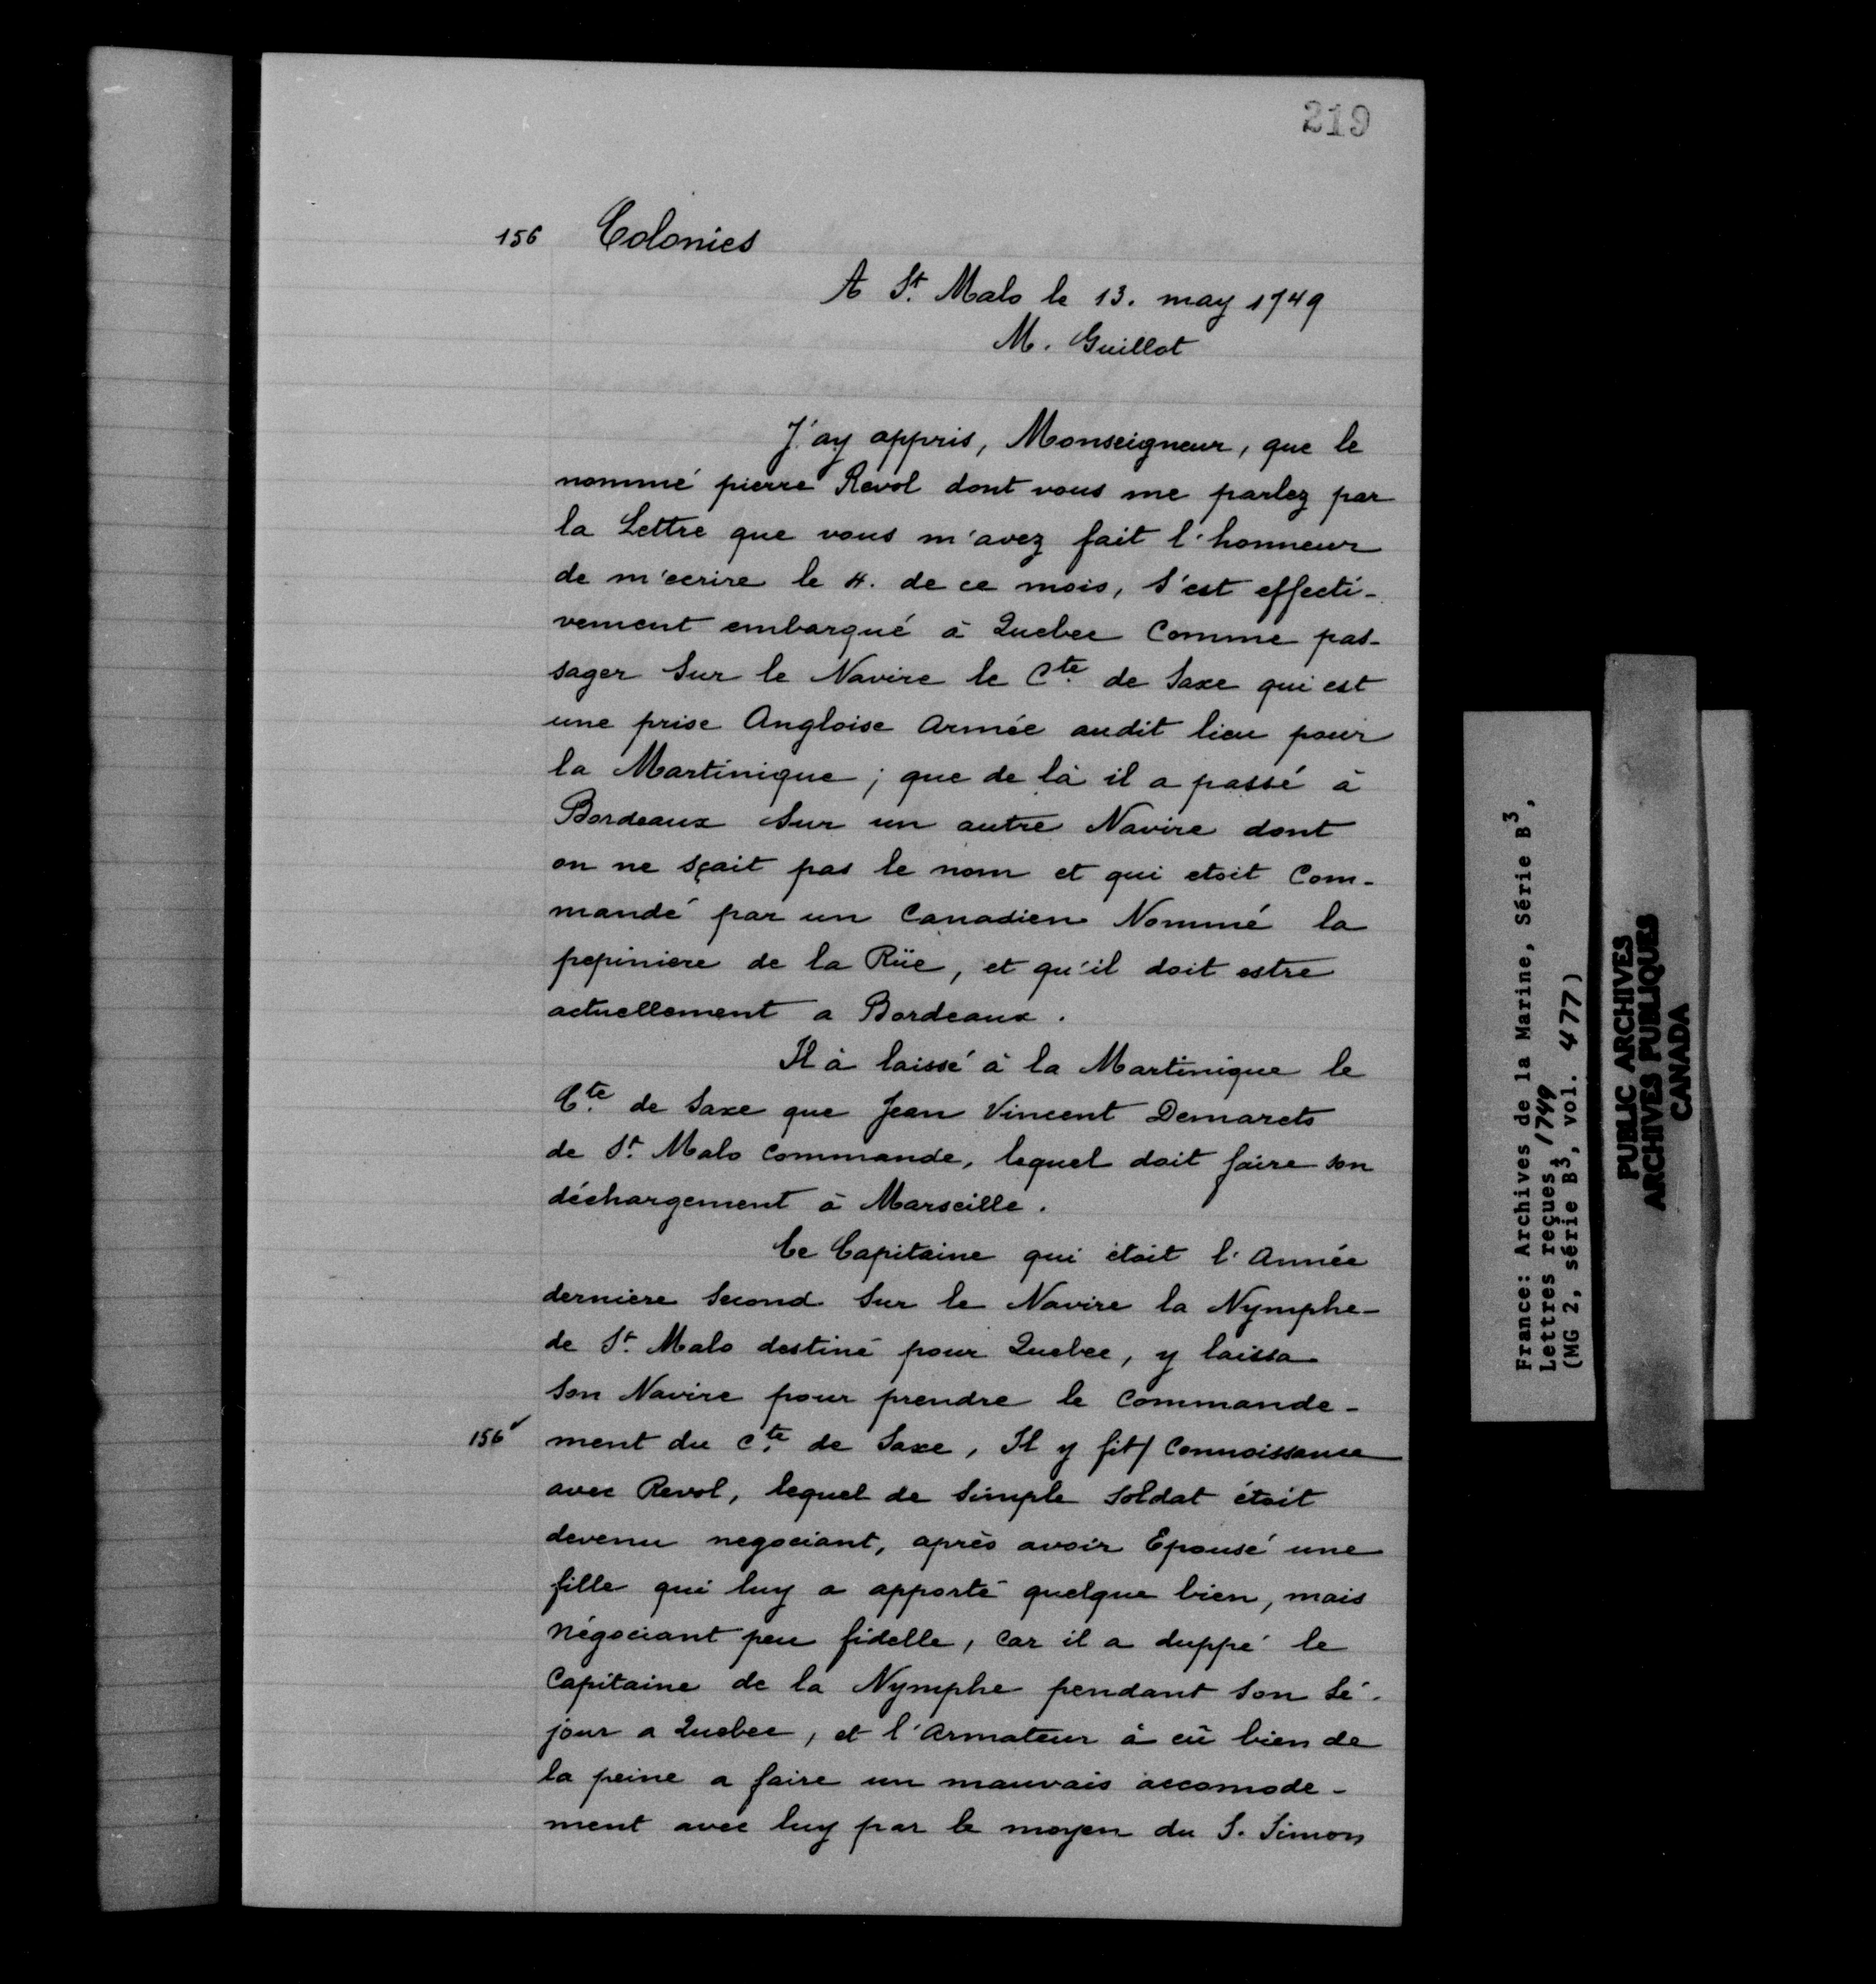 219
156 Colonies
A St. Malo le 13. may 1749
M. Guillot
J'ay appris, Monseigneur, que le
nommé pierre Revol dont vous me parlez par
la Lettre que vous m'avez fait l'honneur
de m'ecrire le 4. de ce mois, s'est effecti-
vement embarqué à Quebec Comme pas-
sager Sur le Navire le Cte. de Saxe qui est
une prise Angloise Armée audit lieu pour
la Martinique ; que de là il a passé à
Bordeaux Sur un autre Navire dont
on ne sçait pas le nom et qui etoit Com-
mandé par un Canadien Nommé la
pepiniere de la Rüe, et qu'il doit estre
actuellement a Bordeaux.
Il à laissé à la Martinique le
Cte. de Saxe que Jean Vincent Demarets
de St. Malo Commande, lequel doit faire son
déchargement à Marseille.
Ce Capitaine qui étoit l'Année
derniere Second Sur le Navire la Nymphe-
de St. Malo destiné pour Quebec, y laissa
Son Navire pour prendre le Commande-
156v ment du Cte. de Saxe, Il y fit/ Connoissance
avec Revol, lequel de Simple Soldat étoit
devenu negociant, après avoir Epousé une
fille qui luy a apporté quelque bien, mais
Négociant peu fidelle, Car il a duppé le
Capitaine de la Nymphe pendant Son Sé-
jour a Quebec, et l'Armateur à eû bien de
la peine a faire un mauvais accomode-
ment avec luy par le moyen du S. Simon
France: Archives de la Marine, Série B3,
Lettres reçues, 1749
(MG 2, série B3, vol. 477)
PUBLIC ARCHIVES
ARCHIVES PUBLIQUES
CANADA